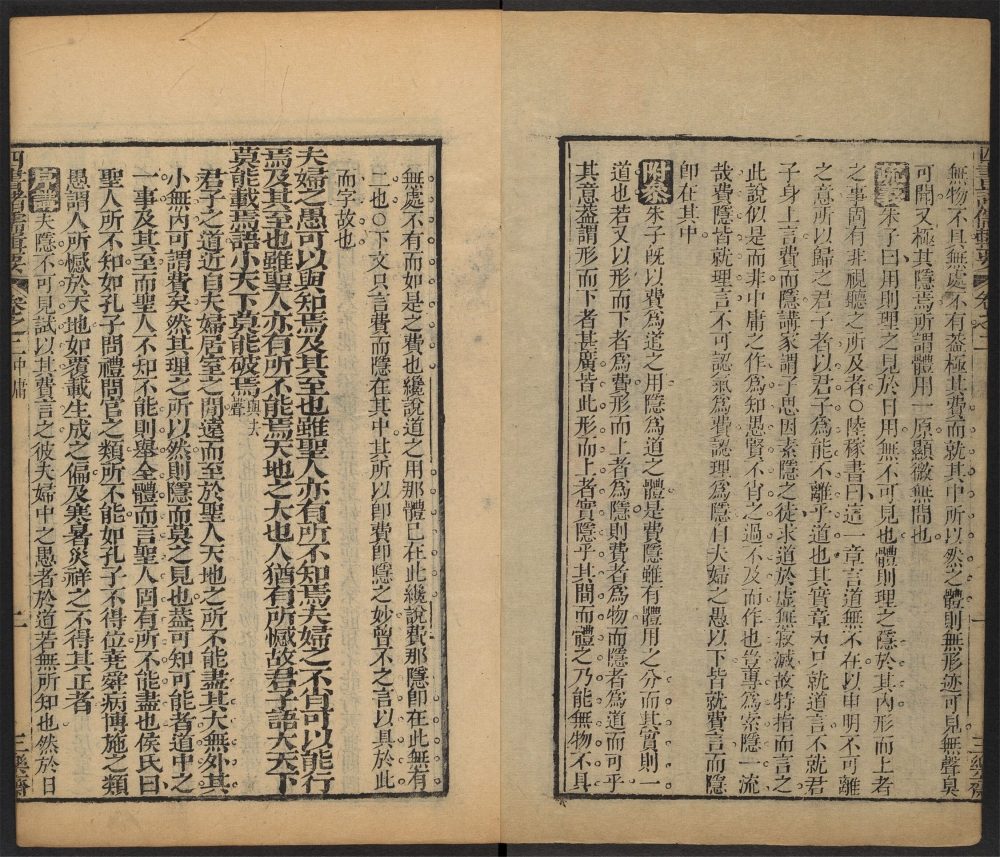 無物不具無處不有葢極其費而就其中所以然之體則無形迹可見無聲臭
可聞又極其隱焉所謂體用一原顯微無間也
朱子曰用則理之見於日用無不可見也體則理之隱於其內形而上者
之事固有非視聽之所及者○陸稼書曰這一章言道無不在以申明不可離
之意所以歸之君子者以君子為能不離乎道也其實章內只就道言不就君
子身上言費而隱講家謂子思因素隱之徒求道於虛無寂滅故特指而言之
此說似是而非中庸之作為知愚賢不肖之過不及而作也豈專為索隱一流
哉費隱皆就理言不可認氣為費認理為隱自夫婦之愚以下皆就費言而隱
即在其中
附叅朱子既以費為道之用隱為道之體是費隱雖有體用之分而其實則一
道也若又以形而下者為費形而上者為隱則費者為物而隱者為道而可乎
其意葢謂形而下者甚廣皆此形而上者實隱乎其間而體之乃能無物不具
無處不有而如是之費也纔說道之用那體已在此纔說費那隱即在此無有
二也○下文只言費而隱在其中其所以即費即隱之妙曾不之言以具於此
而字故也
夫婦之愚可以與知焉及其至也雖聖人亦有所不知焉夫婦之不肖可以能行
焉及其至也雖聖人亦有所不能焉天地之大也人猶有所憾故君子語大天下
莫能載焉語小天下莫能破焉與去聲
君子之道近自夫婦居室之間遠而至於聖人天地之所不能盡其大無外其
小無內可謂費矣然其理之所以然則隱而莫之見也葢可知可能者道中之
一事及其至而聖人不知不能則舉全體而言聖人固有所不能盡也侯氏曰
聖人所不知如孔子問禮問官之類所不能如孔子不得位堯舜病博施之類
愚謂人所憾於天地如覆載生成之偏及寒暑災祥之不得其正者
夫隱不可見試以其費言之彼夫婦中之愚者於道若無所知也然於日
卷之二中庸
二
三樂齋